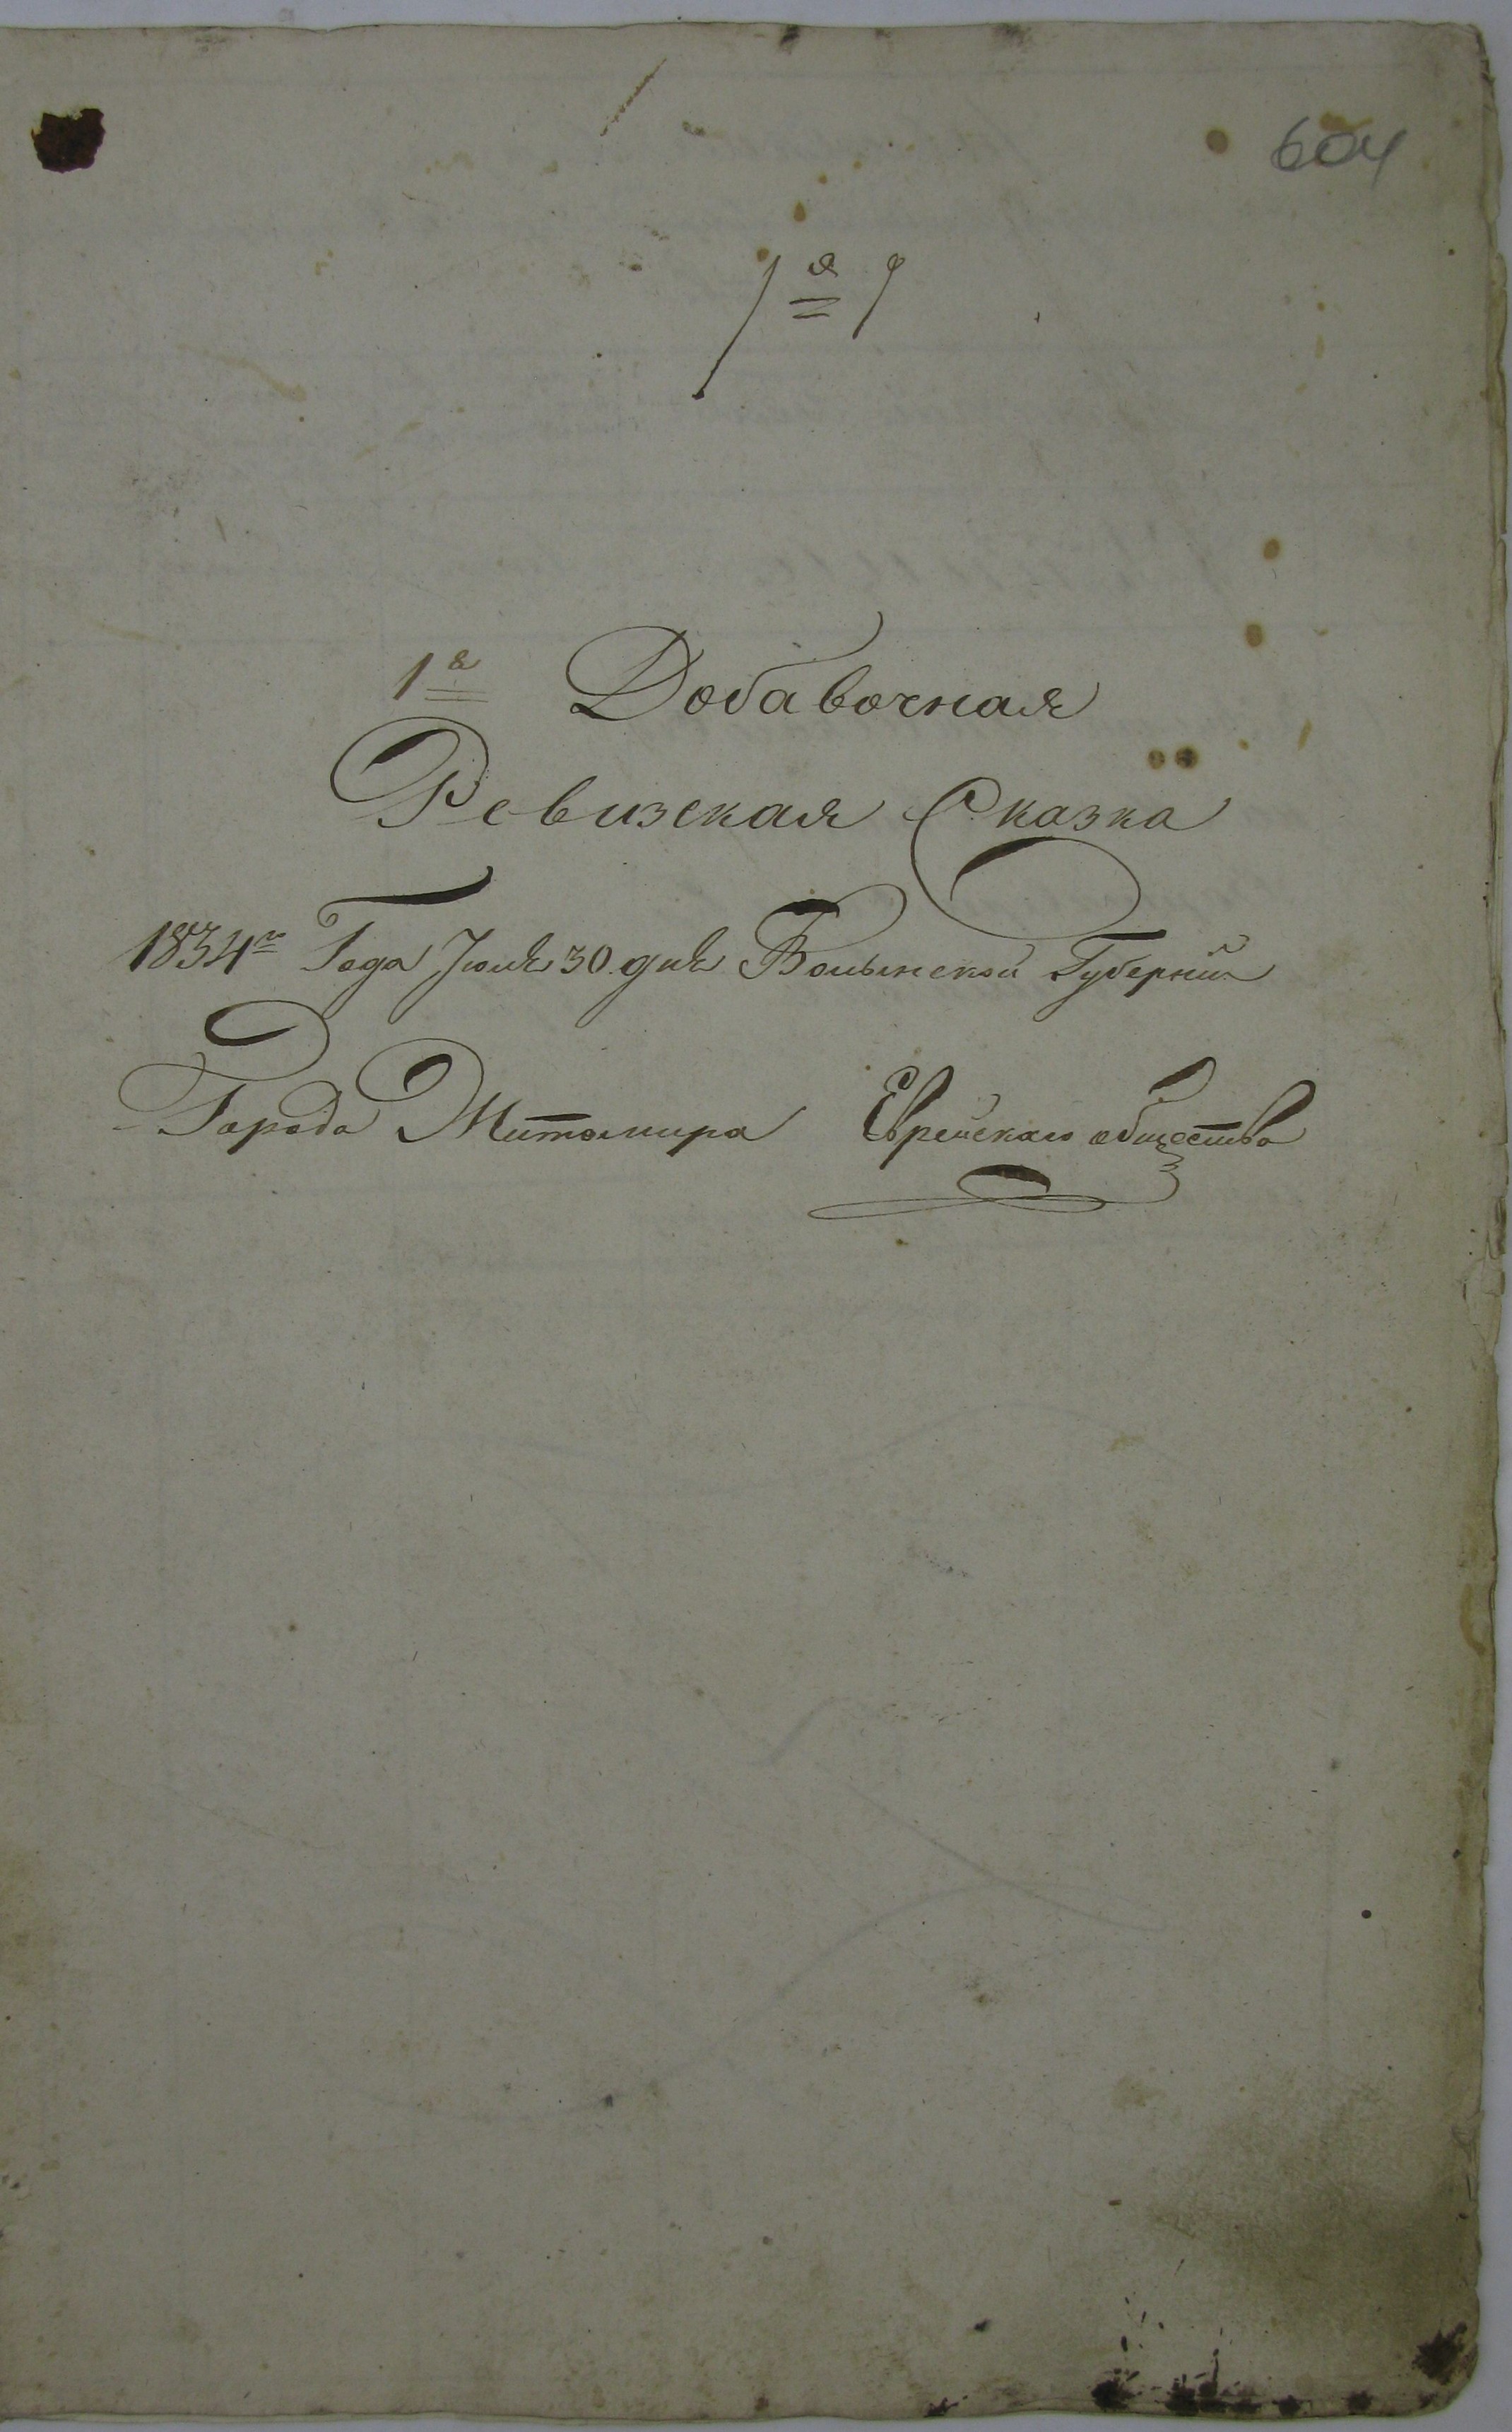 604
1я
1я Добавочная
Ревизская Сказка
1834го Года Июля 30 дня Волынской Губернии
Города Житомира Еврейскаго общества